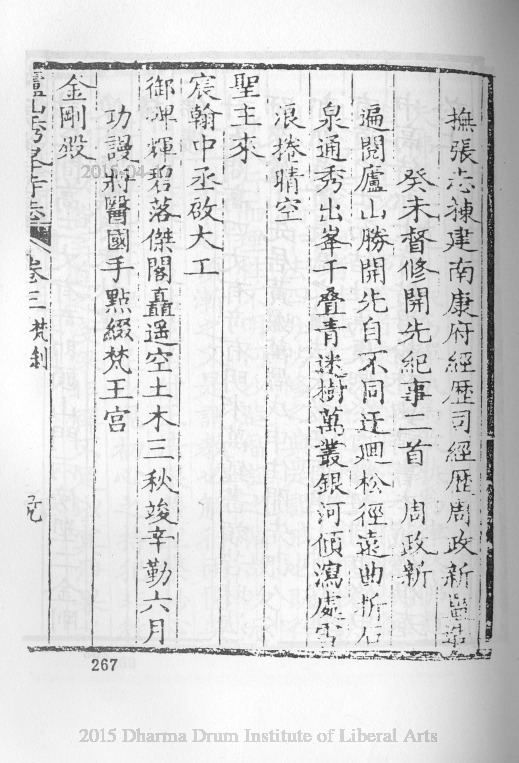 撫張志棟建南康府經歷司經歷周政新
癸未督修開先紀事二首 周政新
遍閱廬山勝開先自不同迂迴松徑遠曲折石
泉通秀出峯千叠青迷樹萬叢銀河傾瀉處雪
浪捲晴空
聖主來
宸翰中丞啟大工
御碑輝碧落傑閣矗遥空土木三秋竣辛勤六月
功謾將醫國手點綴梵王宫
金剛殿
廬山秀峯寺志 卷三 梵刹
267
2015 Dharma Drum Institute of Liberal Arts